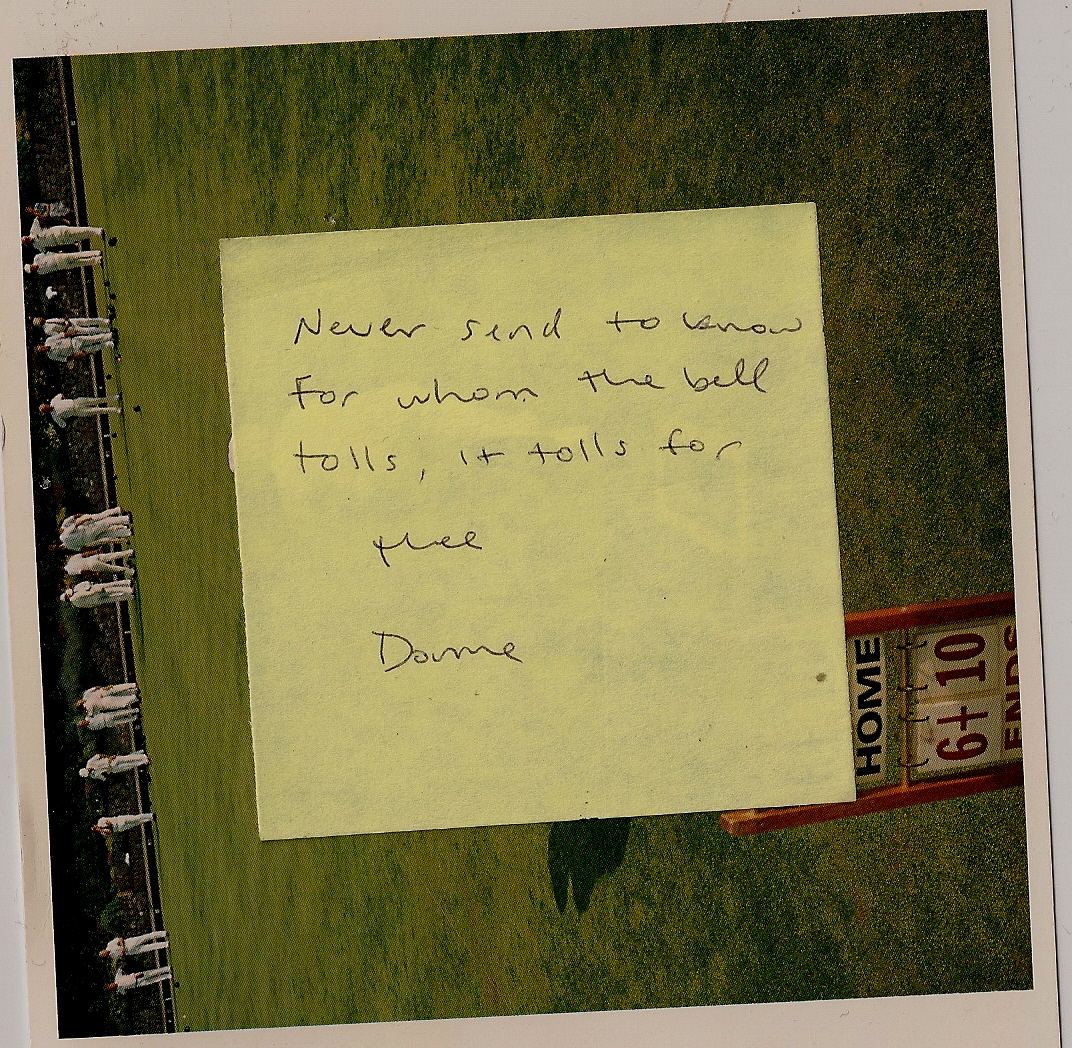 Never send to know
For whom the bell
tolls, it tolls for
thee
Donne
HOME
6+ 10
ENDS